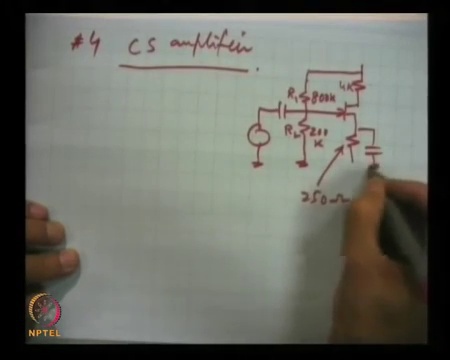 #4 CS amplifier
R1 800K
4K
R2 200
K
250Ω
NPTEL